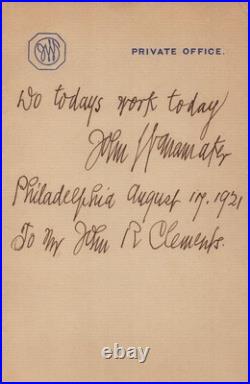 JW
PRIVATE OFFICE.
Do todays work today
John Wanamaker
Philadelphia August 17. 1921
To Mr John R Clements.
thecrazysquirrel.com